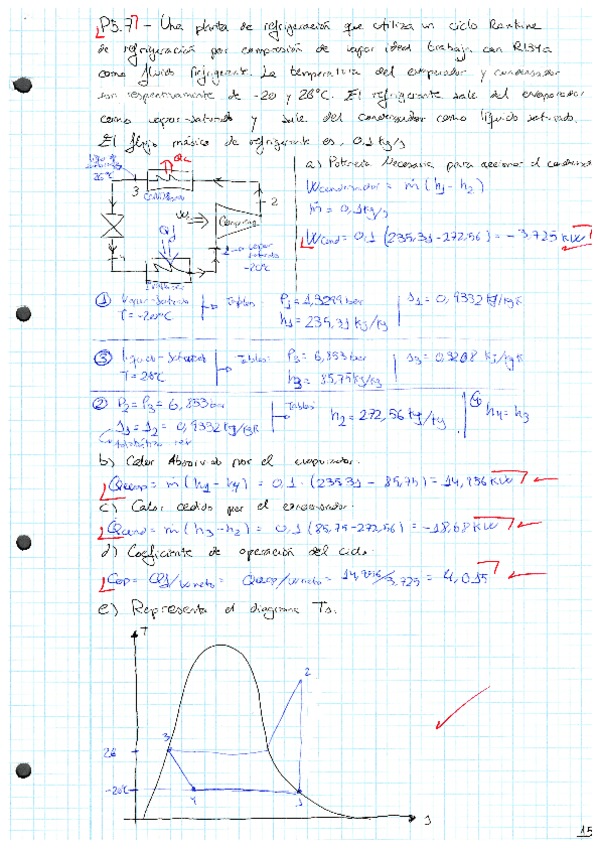 P5.7 - Una planta de refrigeración que utiliza un ciclo Rankine
de refrigeración por compresión de vapor ideal trabaja con R134a
como fluido refrigerante. La temperatura del evaporador y condensador
son respectivamente de -20 y 26°C. El refrigerante sale del evaporador
como vapor saturado y sale del condensador como líquido saturado.
El flujo másico de refrigerante es, 0,1 kg/s
a) Potencia Necesaria para accionar el
ṁ (h1-h2)
ṁ = 0,1 kg/s
= 0,1 (235,31-272,56) = -3,725 kW
26°C
Qc
3
2
4
1 vapor
-20°C
① Vapor-saturado
T = -20°C
Tablas:
P1 = 1,3299 bar
h1 = 235,31 kJ/kg
s1 = 0,9332 kJ/kgK
③ líquido-saturado
T = 26°C
Tablas:
P3 = 6,853 bar
h3 = 85,75 kJ/kg
s3 = 0,3208 kJ/kgK
② P2 = P3 = 6,853 bar
s1 = s2 = 0,9332 kJ/kgK
Tablas
h2 = 272,56 kJ/kg
④ h4 = h3
b) Calor Absorbido por el evaporador.
Qevap = ṁ (h1 - h4) = 0,1 · (235,31 - 85,75) = 14,956 kW
c) Calor cedido por el condensador.
Qcond = ṁ (h3-h2) = 0,1 (85,75-272,56) = -18,68 kW
d) Coeficiente de operación del ciclo.
Cop = Qf/Wneto = Qevap/Wneto = 3,725 = 4,015
e) Representa el diagrama Ts.
T
2
3
26
-20°C
4
1
s
15